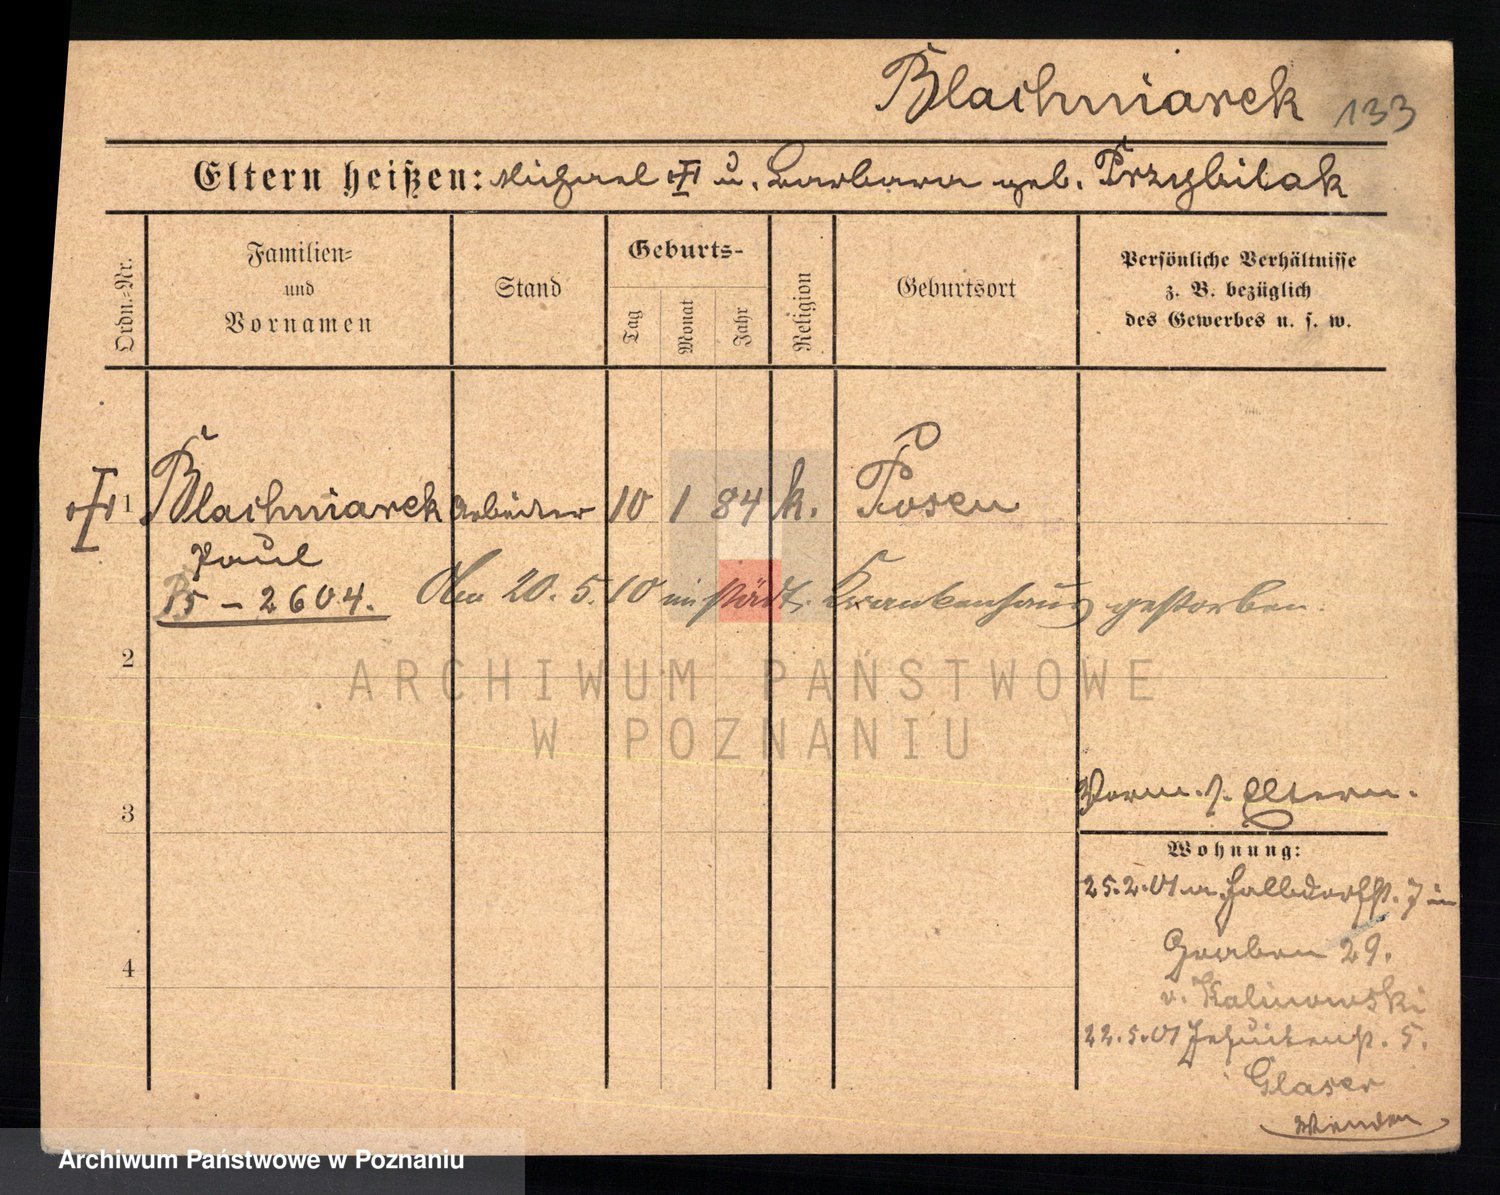 Blachniarek 133
Eltern heißen: Michael u. Barbara geb. Przybilak
Ordn.=Nr.
Familien=
und
Vornamen
Stand
Geburts-
Tag
Monat
Jahr
Religion
Geburtsort
Persönliche Verhältnisse
z. B. bezüglich
des Gewerbes u. s. w.
1 Blachniarek Arbeiter 10 1 84 k. Posen
Paul
P5 – 2604. Am 20.5.10 im städt. Krankenhaus gestorben.
2
ARCHIWUM PAŃSTWOWE
W POZNANIU
3
Vorm. s. Eltern.
Wohnung:
25.2.01 a. Halbdorfst. 7 in
Graben 29.
v. Kalinowski
4
22.5.01 Jesuitenst. 5.
Glaser
Wenden
Archiwum Państwowe w Poznaniu